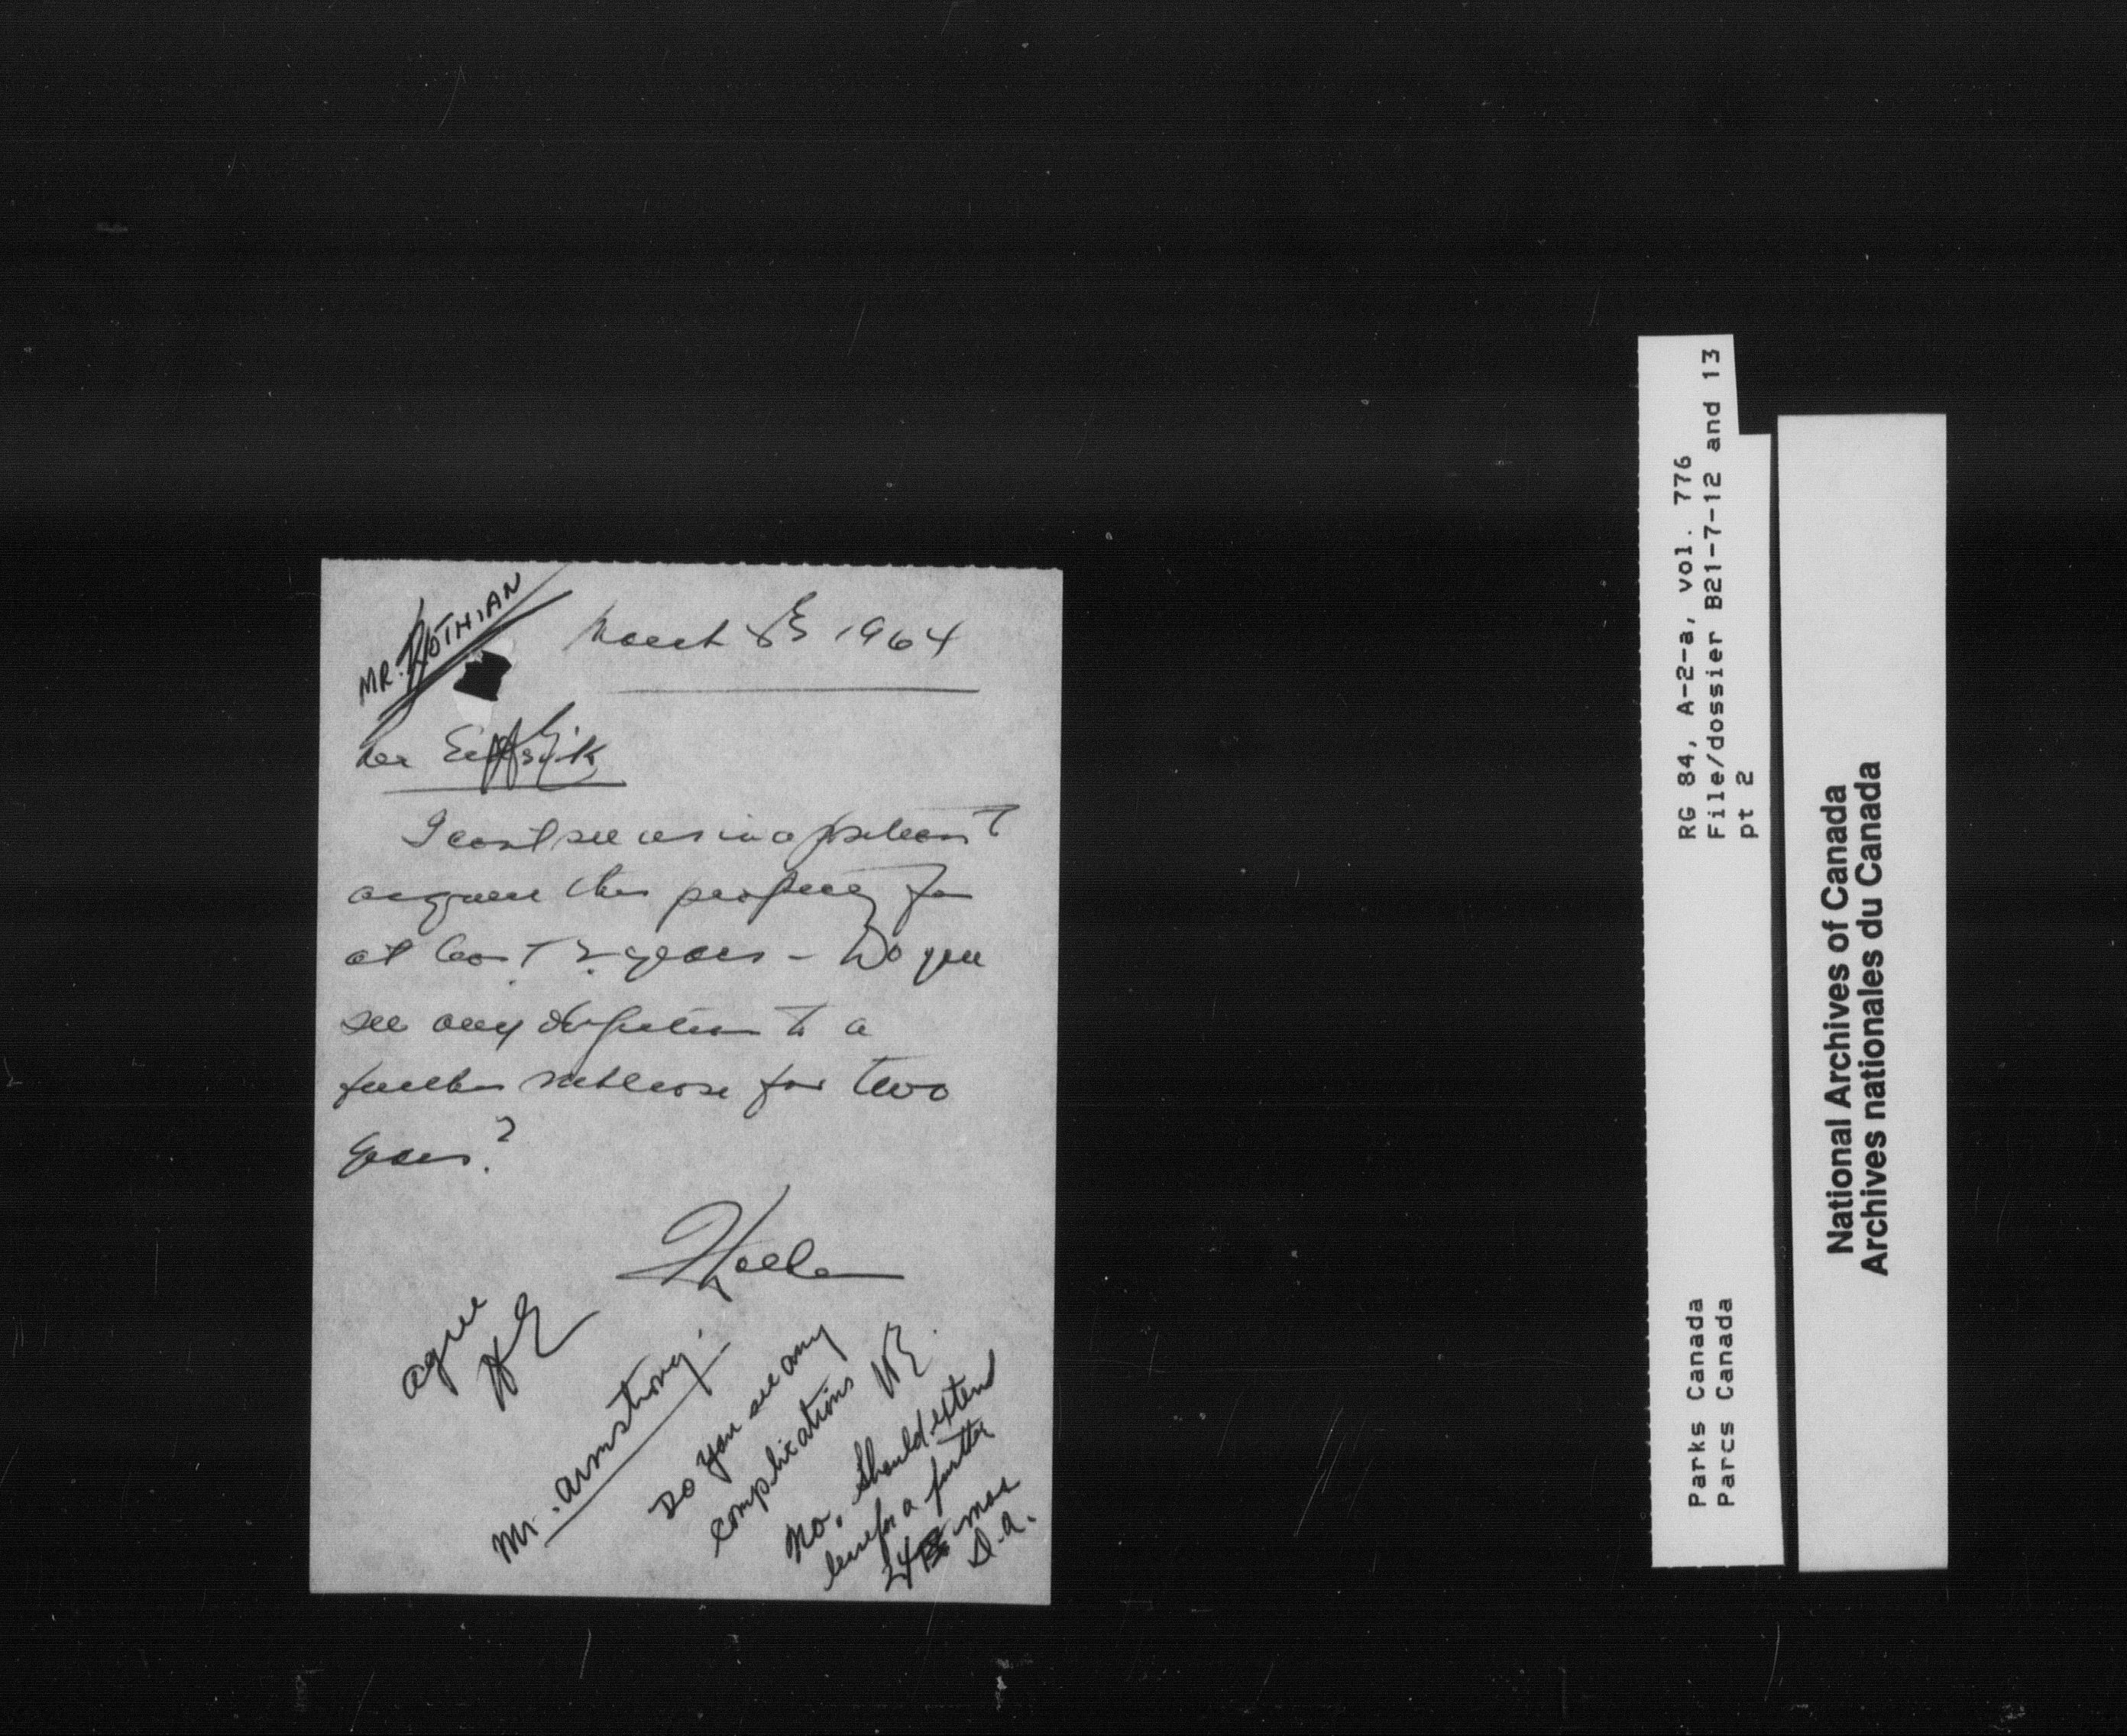 MR. LOTHIAN
March 1964
Mr
I cant see us in a position to
acquire this property for
at least 2 years - Do you
see any objection to a
further sublease for two
years?
agree
Mr. Armstrong
Do you see any
complications
No. Should extend
lease for a further
24 mos
D.A.
RG 84, A-2-a, vol. 776
File/dossier B21-7-12 and 13
pt 2
Parks Canada
Parcs Canada
National Archives of Canada
Archives nationales du Canada